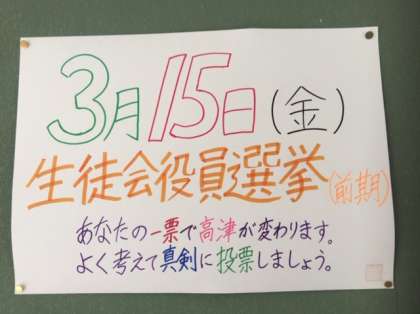 3月15日(金)
生徒会役員選挙(前期)
あなたの一票で高津が変わります。
よく考えて真剣に投票しましょう。